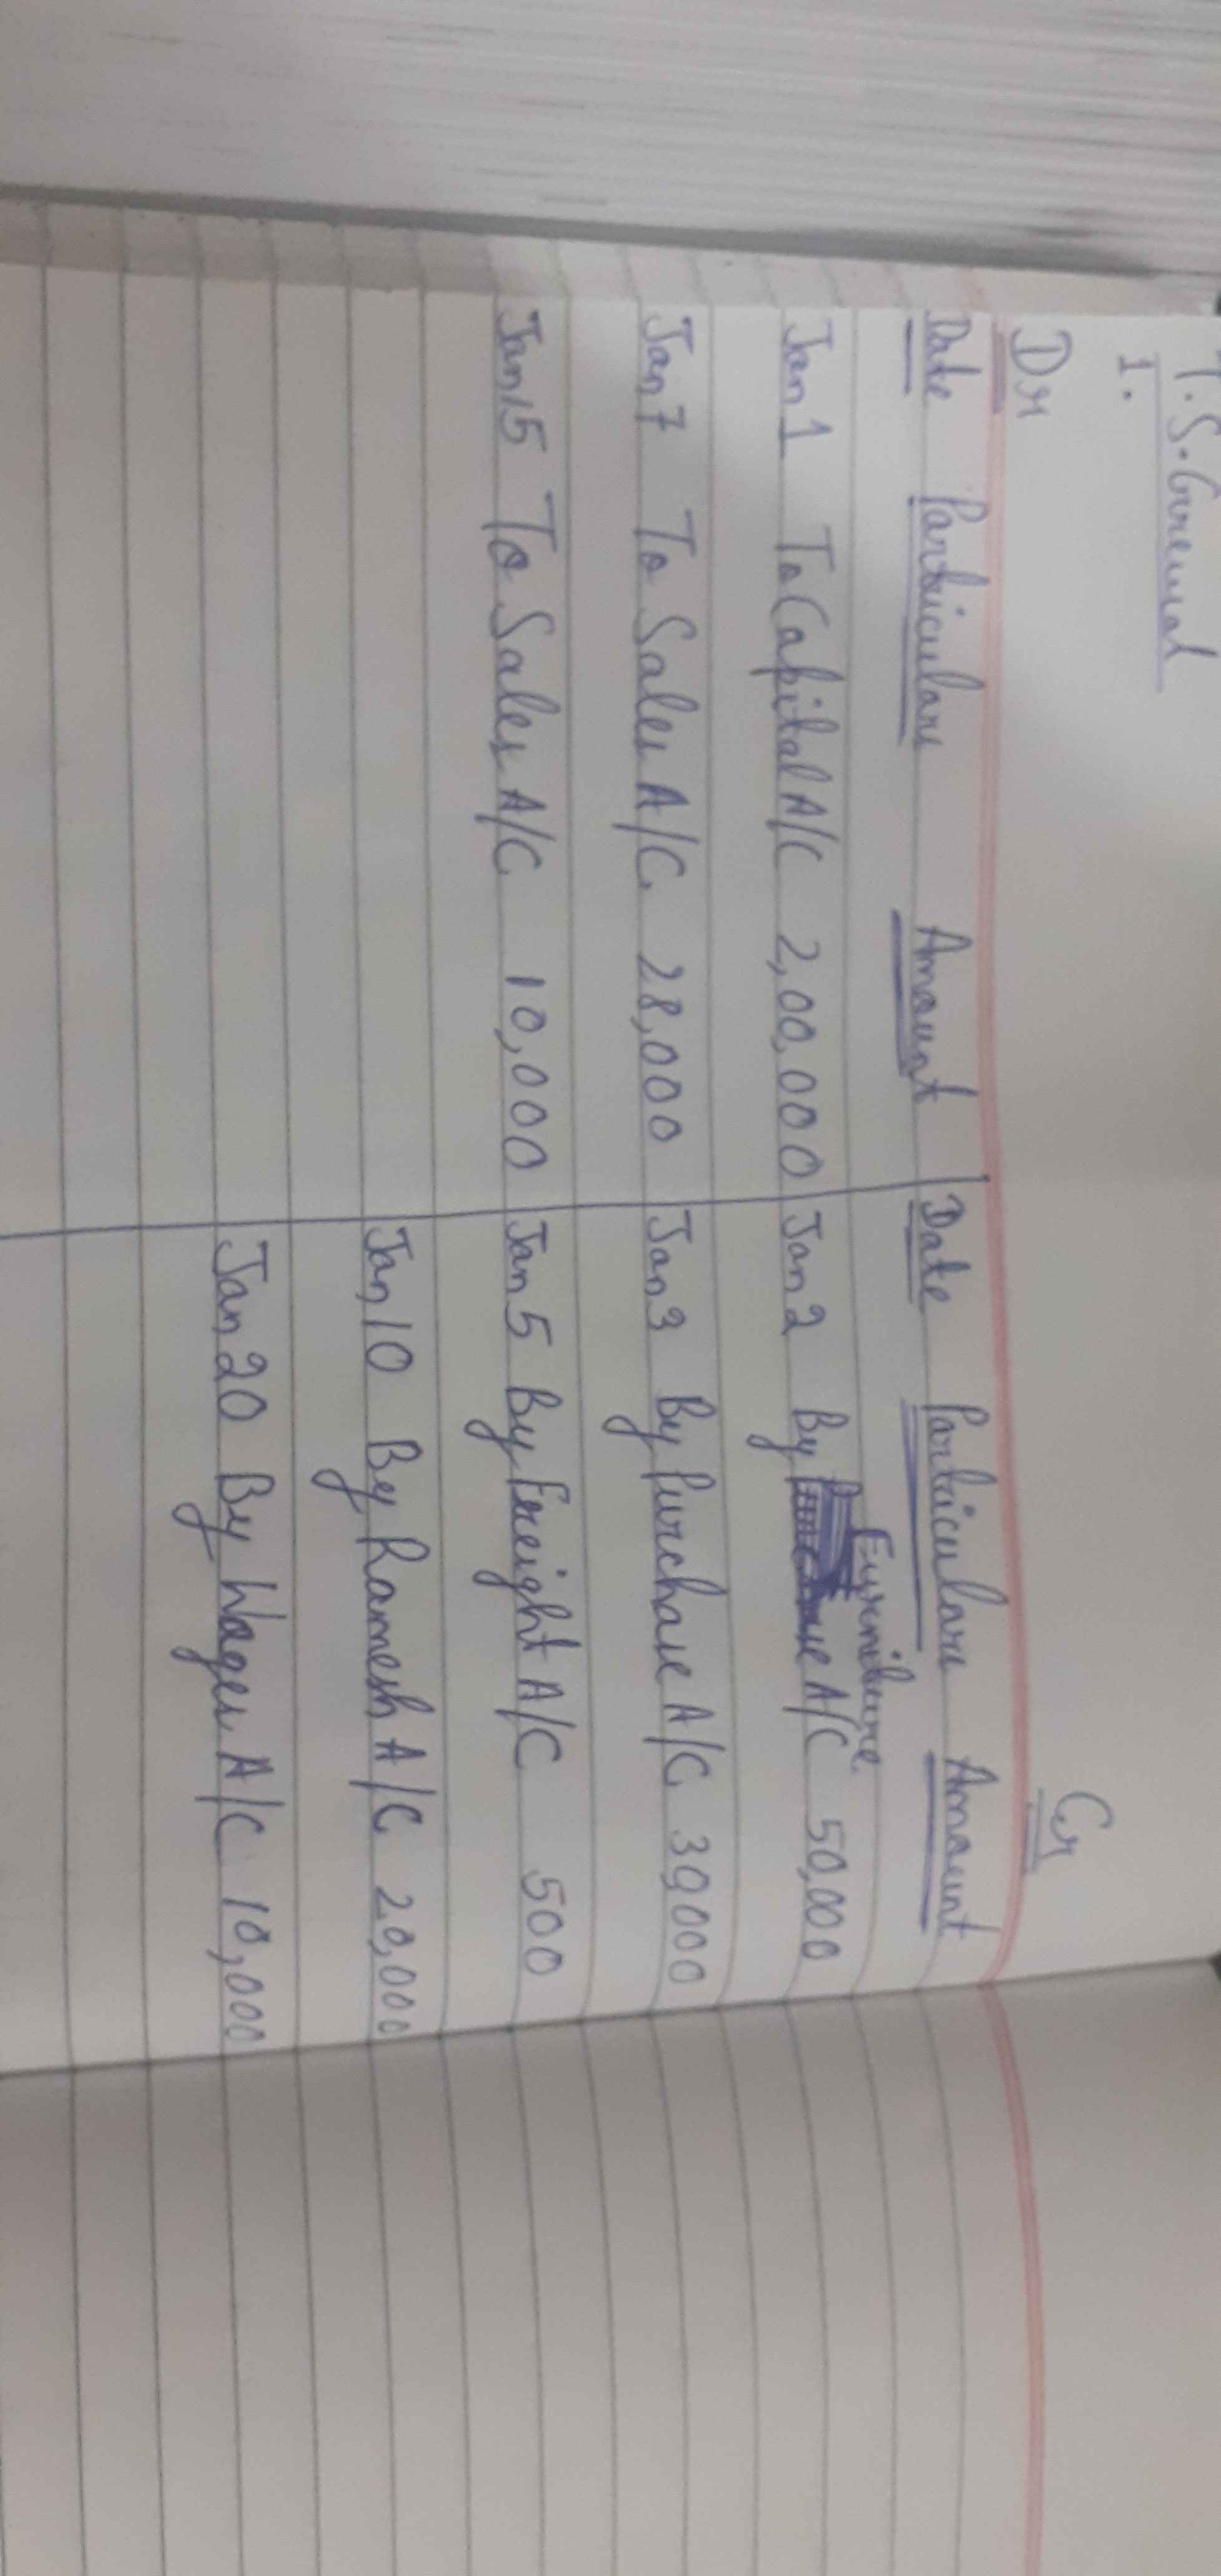 T.S.Grewal
1.
Dr Cr
Date Particulars Amount Date Particulars Amount
Furniture
Jan 1 To Capital A/C 2,00,000 Jan 2 By A/C 50,000
Jan 7 To Sales A/C. 28,000 Jan 3 By Purchase A/C 30000
Jan 15 To Sales A/C. 10,000 Jan 5 By Freight A/C 500
Jan 10 By Ramesh A/C 20,000
Jan 20 By Wages A/C 10,000